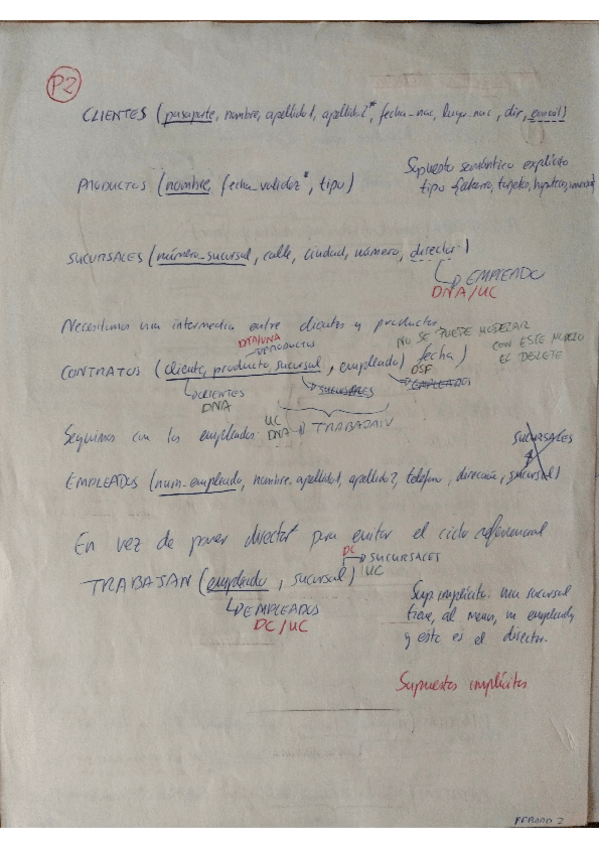 P2
CLIENTES (pasaporte, nombre, apellido1, apellido2*, fecha-nac, lugar-nac, dir, email)
Supuesto semántico explícito
PRODUCTOS (nombre, fecha_validez*, tipo)
tipo {ahorro, tarjetas, hipotecas,
SUCURSALES (número_sucursal, calle, ciudad, número, director)
EMPLEADO
DNA/UC
Necesitamos una intermedia entre clientes y productos
NO SE PUEDE MODELAR
CON ESTE MODELO
EL DELETE
PRODUCTOS
CONTRATOS (cliente, producto, sucursal, empleado) fecha)
OSF
CLIENTES
DNA
SUCURSALES
EMPLEADOS
UC
DNA TRABAJAN
Seguimos con los empleados
SUCURSALES
EMPLEADOS (num-empleado, nombre, apellido1, apellido2, teléfono, dirección, sucursal)
En vez de poner director* para evitar el ciclo referencial
DC
SUCURSALES
UC
TRABAJAN (empleado, sucursal)
EMPLEADOS
DC/UC
Sup implícito: una sucursal
tiene, al menos, un empleado
y este es el director.
Supuestos implícitos